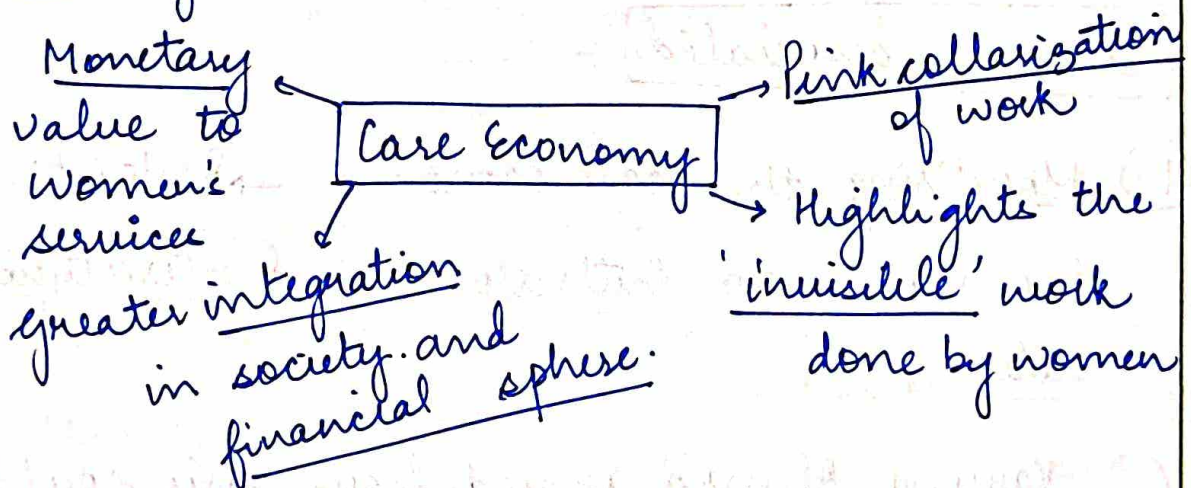 Monetary
value to
women's
services
Care Economy
Pink collarization
of work
Highlights the
'invisible' work
done by women
greater integration
in society and
financial sphere.